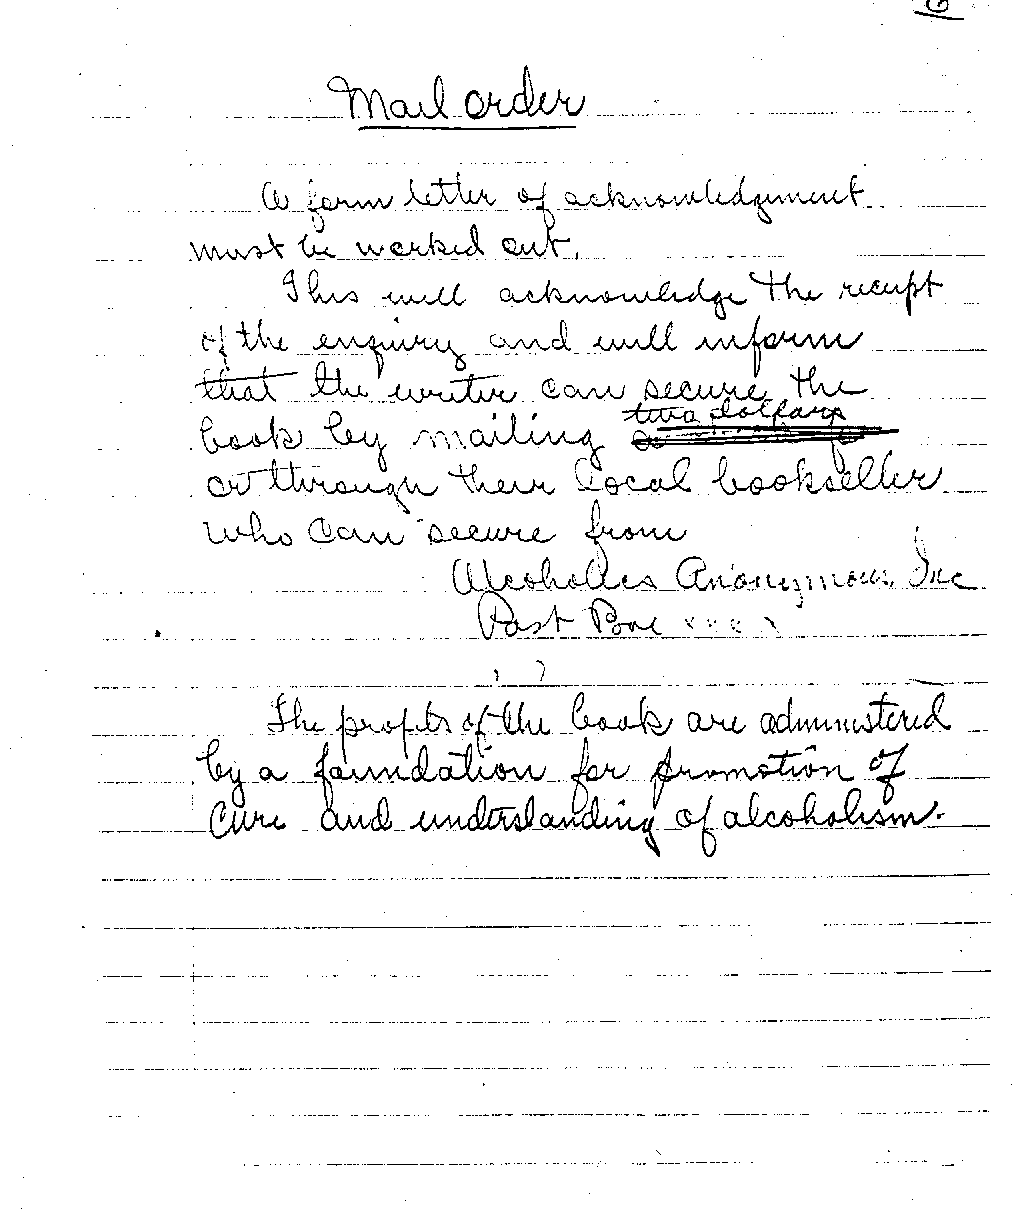 Mail order
A form letter of acknowledgement
must be worked out.
This will acknowledge the receipt
of the enquiry and will inform
that the writer can secure the
two dollars
book by mailing
or through their local bookseller
who can secure from
Alcoholics Anonymous, Inc
Post Box x x x x
The profits of the book are administered
by a foundation for promotion of
cure and understanding of alcoholism.